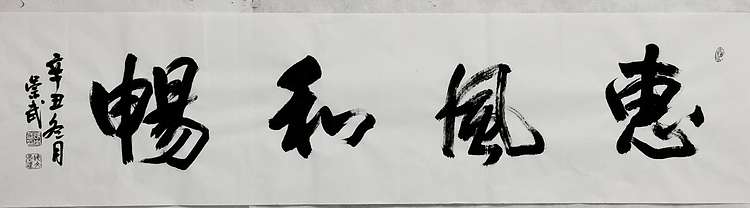 惠風和暢
辛丑冬月
崇武